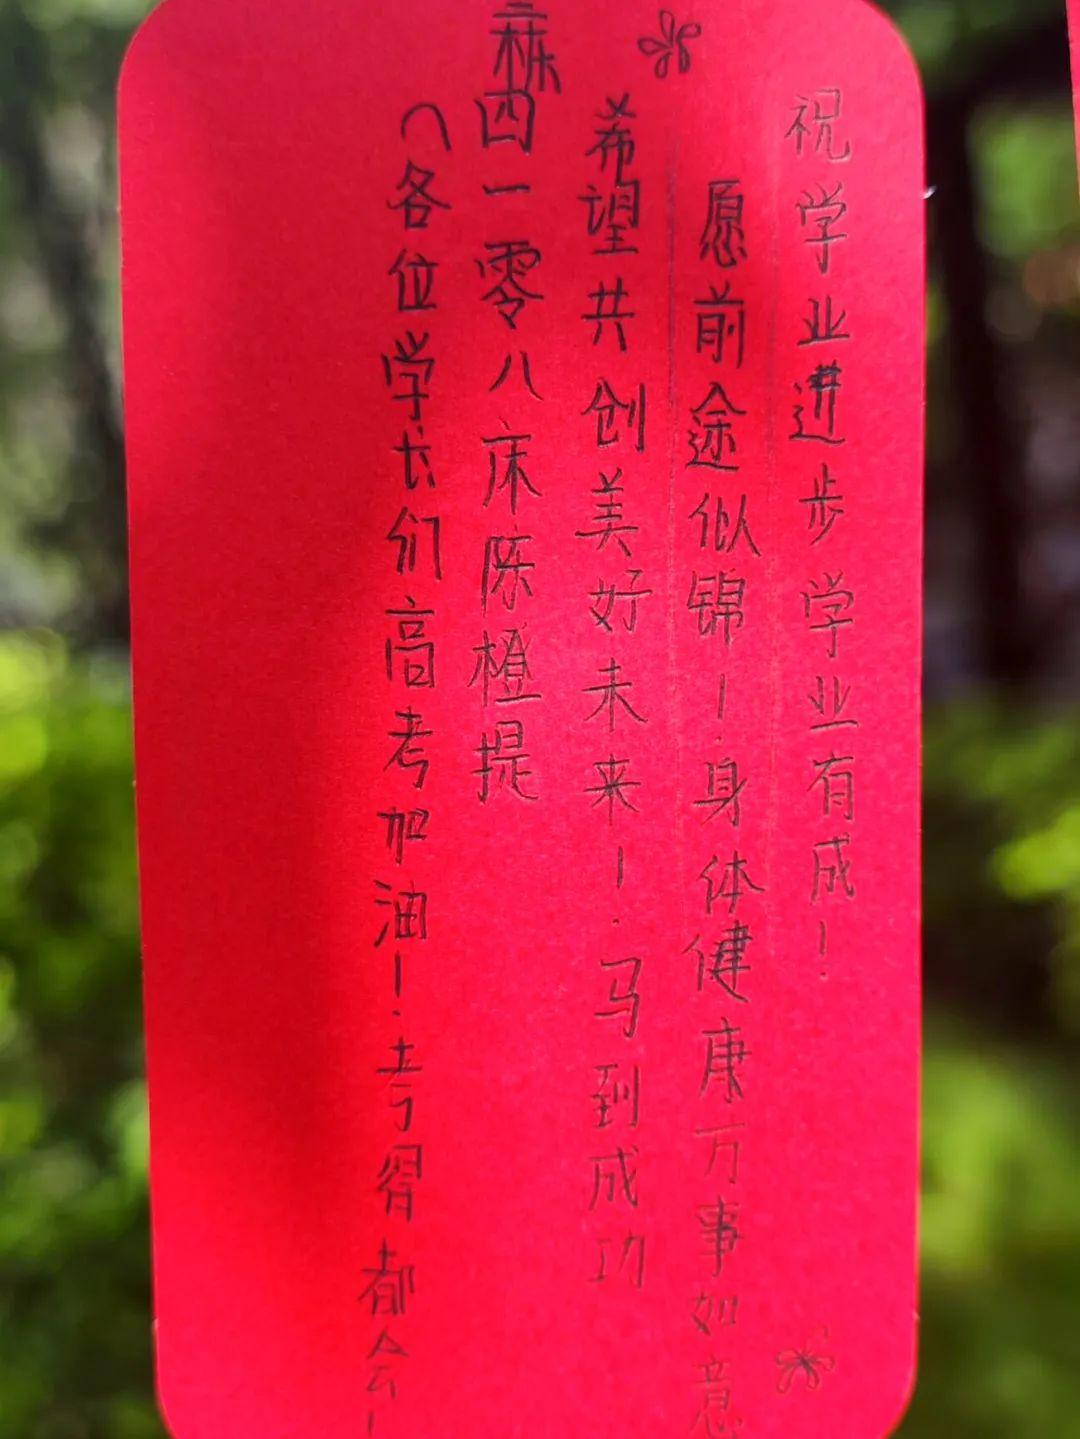 祝学业进步学业有成！
愿前途似锦！身体健康万事如意
希望共创美好未来！马到成功
四一零八床陈橙提
（各位学长们高考加油！考得都会！